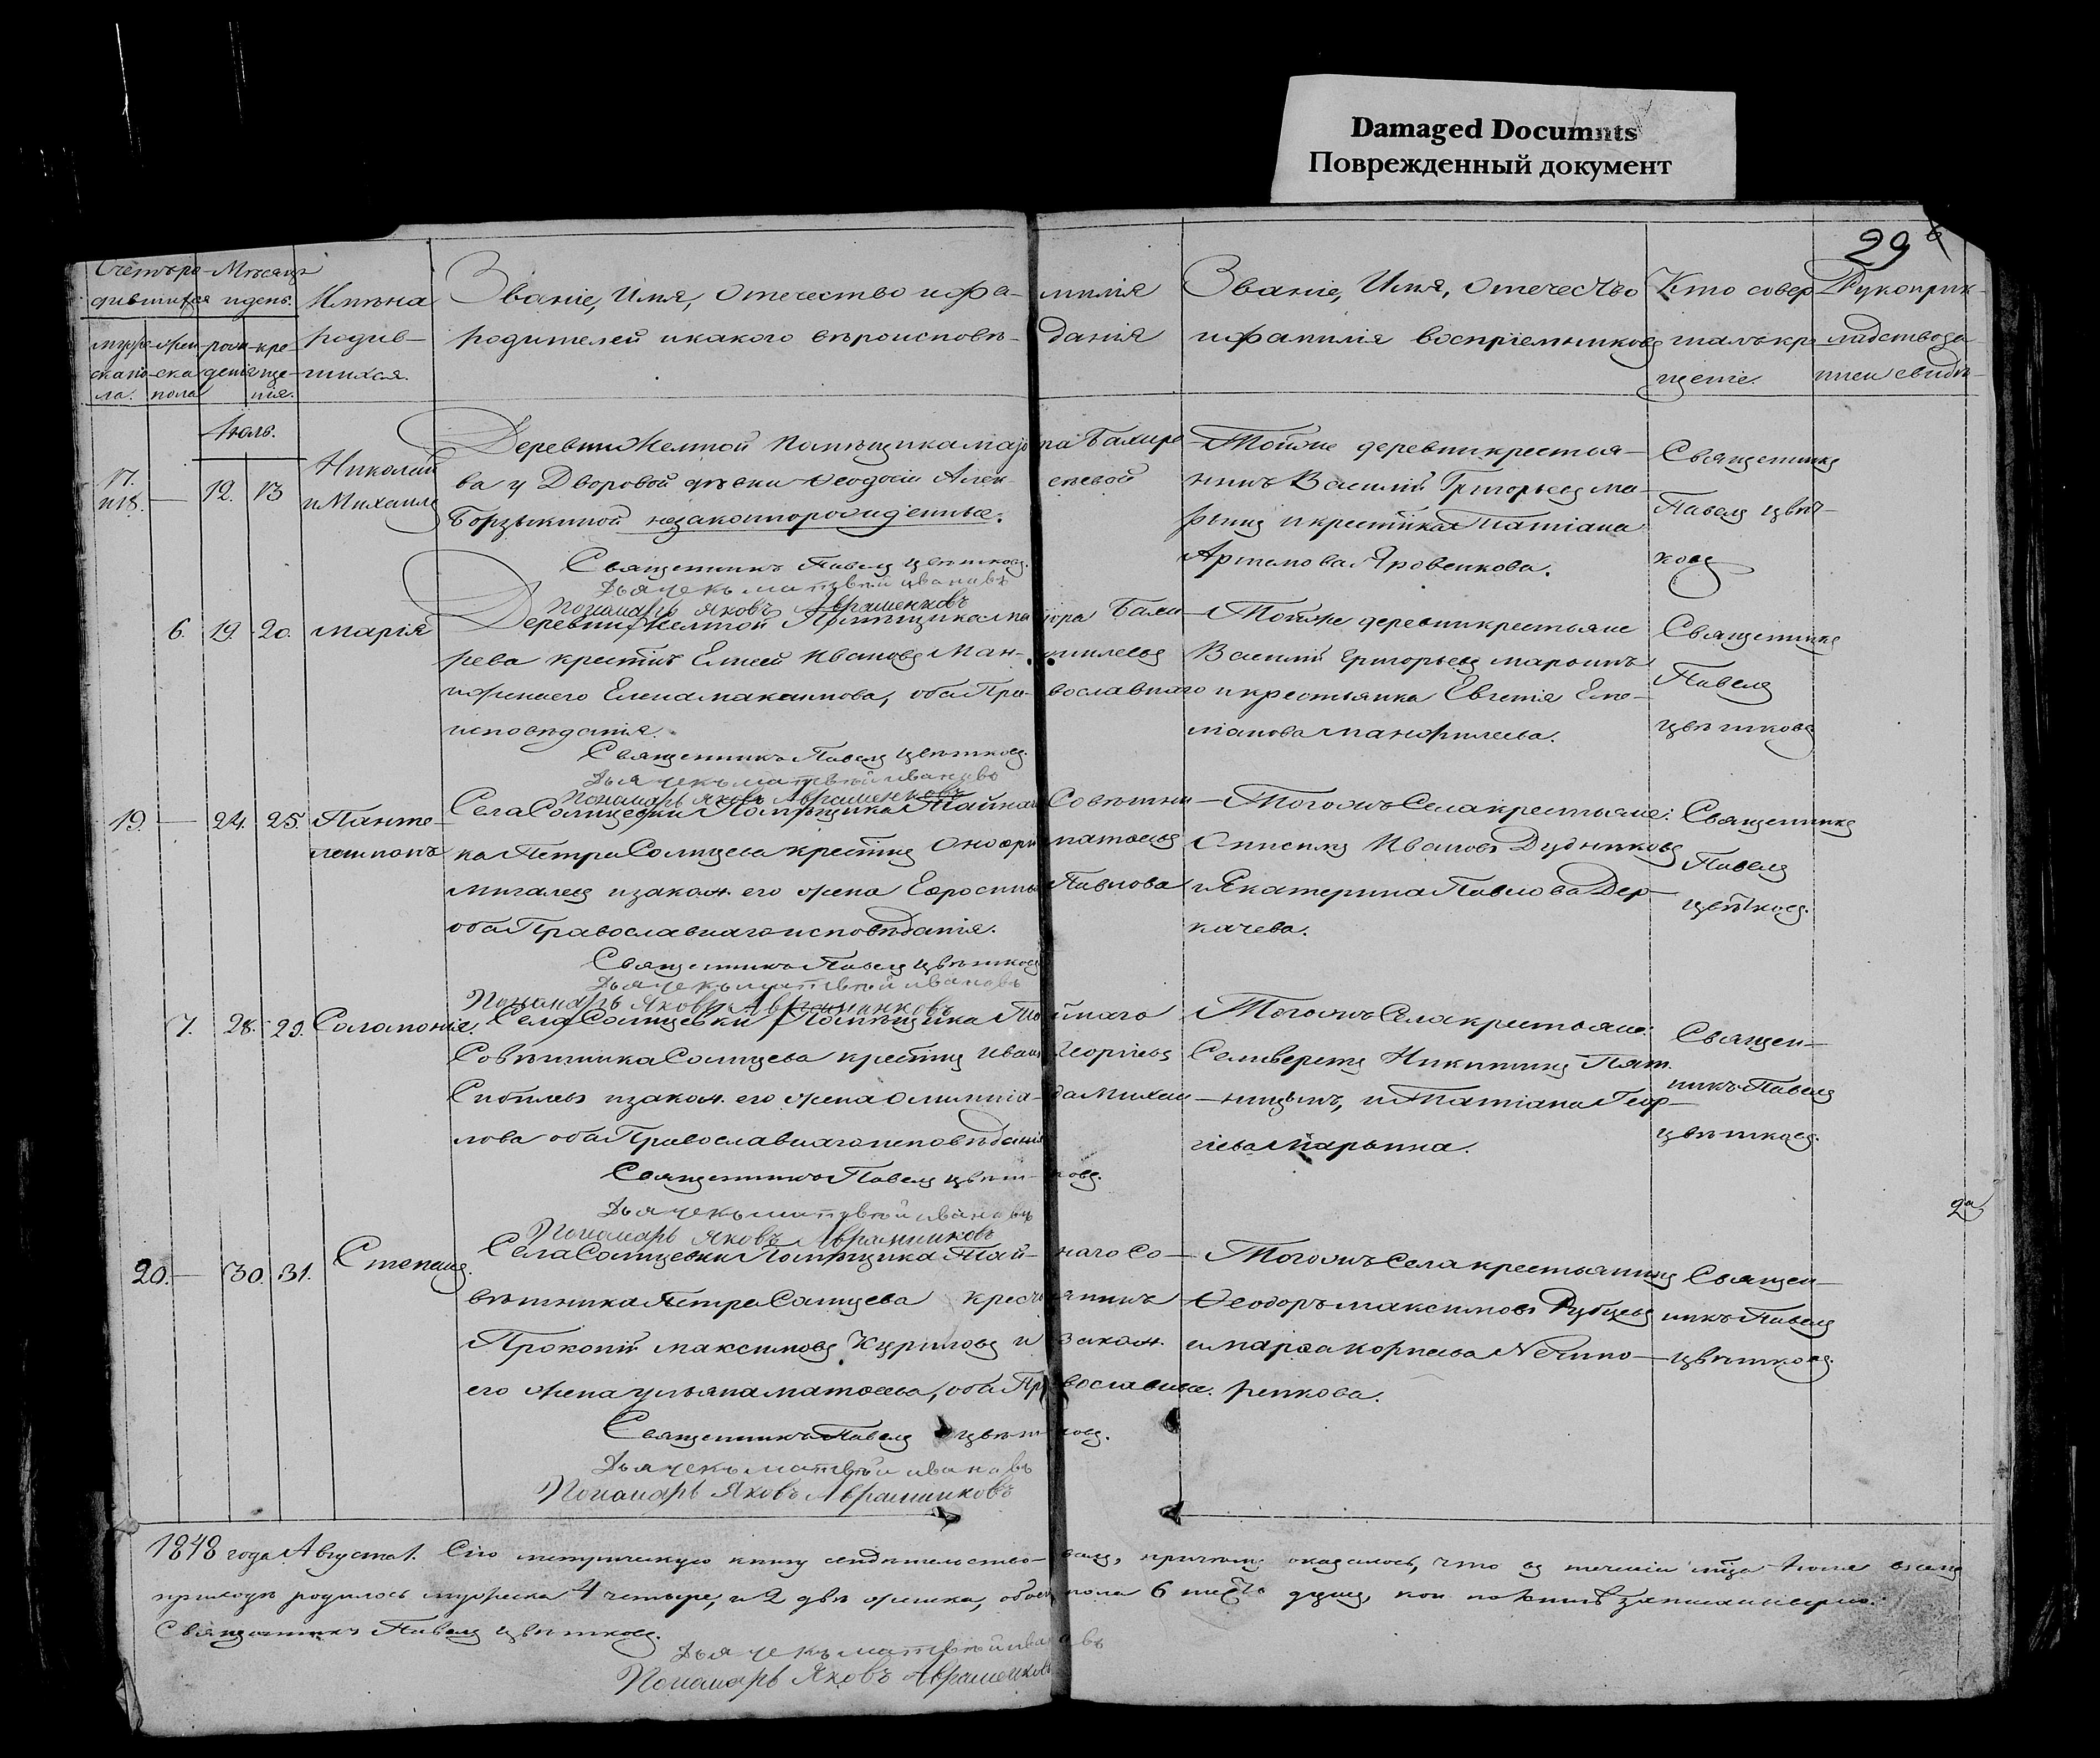 Damaged Documnts
Поврежденный документ
29
Счетъ ро- Мѣсяцъ
дившихся и день.
Имѣна
родив-
шихся.
муже- жен- рож- кре-
скаго по- ска денія ще-
ла. пола нія.
Званіе, Имя, Отечество и фа- милія
родителей и какого вѣроисповѣ- данія
Званіе, Имя, Отечество
и фамилія воспріемниковъ
Кто совер-
шалъ кр-
щеніе.
Рукоприк-
ладство
Іюль.
17.
и 18. — 12. 13 Николай
и Михаилъ
Деревни Желтой Помѣщика маіо ра Башире
ва у Дворовой дѣвки Ѳеодосіи Алек- сеевой
Борзыкиной незаконнорожденные.
Священникъ Павелъ Цвѣтковъ.
Дьячекъ Матвѣй Ивановъ
Пономарь Яковъ Авраменковъ
Тойже деревни крестья-
нинъ Василій Григорьевъ Ма-
рьинъ и крестьянка Татіана
Артемова Яровенкова.
Священникъ
Павелъ Цвѣт-
ковъ
6. 19. 20. Марія
Деревни Желтой Помѣщика ма іора Баши-
рева крестнъ Елисей Ивановъ Ман- филевъ
и жена его Елена Максимова, оба Пра- вославнаго
исповѣданія.
Священникъ Павелъ Цвѣтковъ.
Дьячекъ Матвѣй Ивановъ
Пономарь Яковъ Авраменковъ
Тойже деревни крестьяне
Василій Григорьевъ Марьинъ
и крестьянка Евгенія Еме-
лианова Манфилева.
Священникъ
Павелъ
Цвѣтковъ
19. — 24. 25. Панте-
леимонъ
Села Солнцевки Помѣщика Тайнаго Совѣтни-
ка Петра Солнцева крестнъ Онофрій Матвѣевъ
Мигалевъ и закон. его жена Ефросинья Павлова
оба Православнаго исповѣданія.
Священникъ Павелъ Цвѣтковъ
Дьячекъ Матвѣй Ивановъ
Пономарь Яковъ Авраменковъ
Тогожъ Села крестьяне:
Онисимъ Ивановъ Дудниковъ
и Екатерина Павлова Дер-
качева.
Священникъ
Павелъ
Цвѣтковъ.
7. 28. 29. Саломонія.
Села Солнцевки Помѣщика Та йнаго
Совѣтника Солнцева крестнъ Иванъ Георгіевъ
и закон. его жена Олимпіа- да Михаи-
лова оба Православнаго исповѣданія
Священникъ Павелъ Цвѣт- ковъ.
Дьячекъ Матвѣй Ивановъ
Пономарь Яковъ Аврамниковъ
Тогожъ Села крестьяне:
Селиверстъ Никитинъ Пят-
ницынъ, и Татіана Геор-
гіева Марьина.
Священ-
никъ Павелъ
Цвѣтковъ.
20. — 30. 31. Степанъ.
Села Солнцевки Помѣщика Тай- наго Со-
вѣтника Петра Солнцева кресть янинъ
Прокопій Максимовъ Куриловъ и закон.
его жена Ульяна Матвѣева, оба Пр вославные.
Священникъ Павелъ Цвѣт- ковъ.
Дьячекъ Матвѣй Ивановъ
Пономарь Яковъ Аврамниковъ
Тогожъ Села крестьянинъ
Ѳеодоръ Максимовъ Рубцевъ
и Марѳа Корнеева Нечипо-
ренкова.
Священ-
никъ Павелъ
Цвѣтковъ.
1848 года Августа 1. Сію метрическую книгу свидѣтельство- валъ, причемъ оказалось, что въ теченіи мца Іюля въ семъ
приходѣ родилось мужеска 4 четыре, и 2 двѣ женска, обоего пола 6 шесть душъ, кои записаны верно.
Священникъ Павелъ Цвѣтковъ.
Дьячекъ Матвѣй Ивановъ
Пономарь Яковъ Авраменковъ